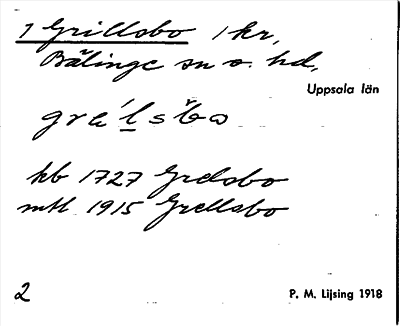 1 Grillsbo 1 kr,
Bälinge sn o. hd,
Uppsala län
gre´lsbo
kb 1727 Grelsbo
mtl 1915 Grellsbo
2
P. M. Lijsing 1918